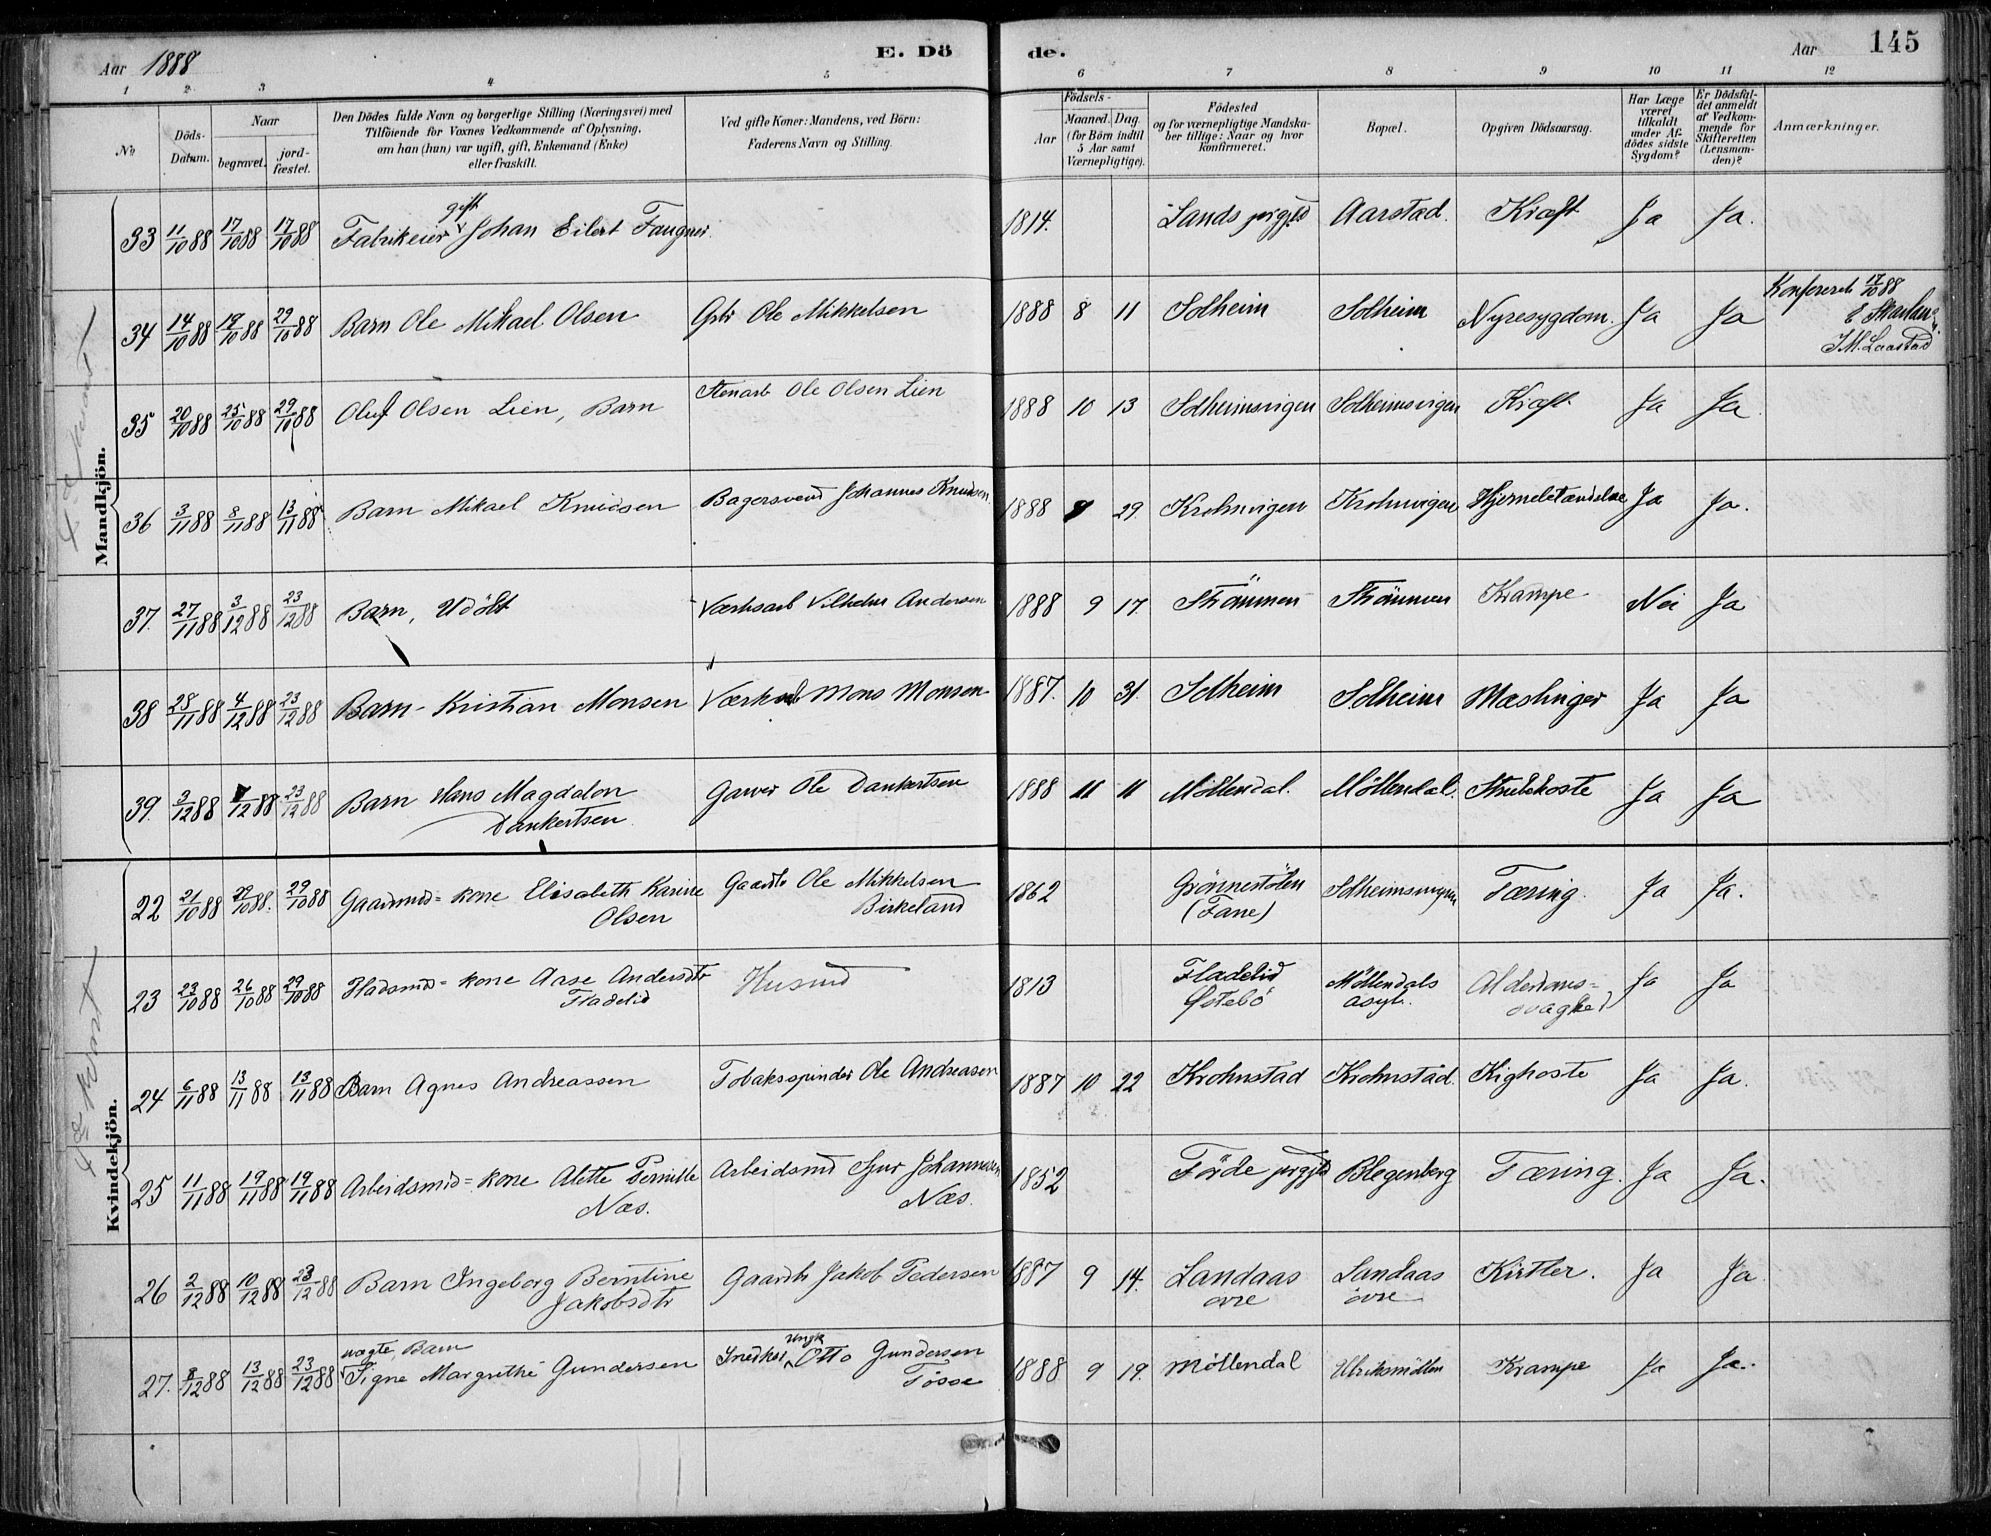 Aar 1888 E. Dö de. Aar 145
1 2 3 4 5 6 7 8 9 10 11 12
No
Döds-Datum.
Naar
begravet.
jord-fæstet.
Den Dödes fulde Navn og borgerlige Stilling (Næringsvei) med
Tilföiende for Voxnes Vedkommende af Oplysning,
om han (hun) var ugift, gift, Enkemand (Enke)
eller fraskilt.
Ved gifte Koner: Mandens, ved Börn:
Faderens Navn og Stilling.
Födsels-
Aar
Maaned. Dag
(for Börn indtil
5 Aar samt
Værnepligtige).
Födested
og for værnepligtige Mandska-
ber tillige: Naar og hvor
konfirmeret.
Bopæl.
Opgiven Dödsaarsag.
Har Læge
været
tilkaldt
under Af-
dödes sidste
Sygdom?
Er Dödsfal-
det anmeldt
af Vedkom-
mende for
Skifteretten
(Lensman-
den)?
Anmærkninger.
Mandkjön.
33 11/10 88 17/10 88 17/10 88 Fabrikeier gift Johan Eilert Faugner. 1814. Lands prgjld Aarstad. Kræft Ja Ja.
34 14/10 88 19/10 88 29/10 88 Barn Ole Mikael Olsen Gbr Ole Mikkelsen 1888 8 11 Solheim Solheim Nyresygdom. Ja Ja Konfereret 17/10 88
J M. Laastad
35 20/10 88 25/10 88 29/10 88 Oluf Olsen Lien, Barn Stenarb Ole Olsen Lien 1888 10 13 Solheimsvigen Solheimsvigen Kræft Ja Ja
36 3/11 88 8/11 88 13/11 88 Barn Mikael Knudsen Bagersvend Johannes Knudsen 1888 9 29. Krohnvigen Krohnvigen Hjernebetændelse Ja Ja.
37. 27/11 88 3/12 88 23/12 88 Barn, Udöbt Værksarb Vilhelm Andersen 1888 9 17. Strömmen Strömmen Krampe Nei Ja
38 28/11 88 4/12 88 23/12 88 Barn Kristian Monsen Værksarb Mons Monsen 1887. 10 31. Solheim Solheim Mæslinger Ja Ja
39. 3/12 88 /12 88 23/12 88 Barn Hans Magdalon
Dankertsen
Garver Ole Dankertsen 1888 11 11 Möllendal. Möllendal. Strubehoste Ja Ja
Kvindekjön.
22 21/10 88 29/10 88. 29/10 88 Gaardmd = kone Elisabeth Karine
Olsen
Gaardb Ole Mikkelsen
Birkeland
1862 Grönnestölen
(Fane)
Solheimsvigen Tæring. Ja Ja.
23 23/10 88 26/10 88 29/10 88 Pladsmd = kone Aase Andersdtr
Fladelid
Husmd 1813 Fladelid
Östebö
Möllendals
asyl.
Alderdoms=
svaghed
Ja Ja
24 6/11 88 13/11 88 13/11 88 Barn Agnes Andreassen Tobaksspinder Ole Andreasen 1887 10 22 Krohnstad Krohnstad. Kighoste Ja Ja.
25 11/11 88 19/11 88 19/11 88 Arbeidsmd = kone Alette Pernille
Næs.
Arbeidsmd Sjur Johannesen
Næs.
1852 Förde prgjld Blegenberg Tæring. Ja Ja.
26 2/12 88 10/12 88 23/12 88 Barn Ingeborg Berntine
Jakobsdtr
Gaardb Jakob Pedersen 1887 9 14. Landaas
övre
Landaas
övre
Kirtler. Ja Ja
27. 8/12 88 13/12 88 23/12 88 uægte Barn
Signe Margrethe Gundersen
Snedker Ungk Otto Gundersen
Tösse
1888 9 19. Möllendal Ulriksmöllen Krampe Ja Ja.